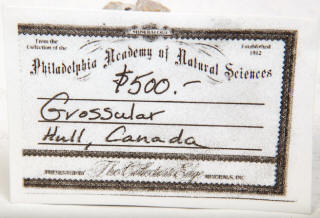 MINERALOGY
From the
Collection of the
Established
1812
Philadelphia Academy of Natural Sciences
$500.-
Grossular
Hull, Canada
PRESENTED BY The Collector's Edge MINERALS, INC